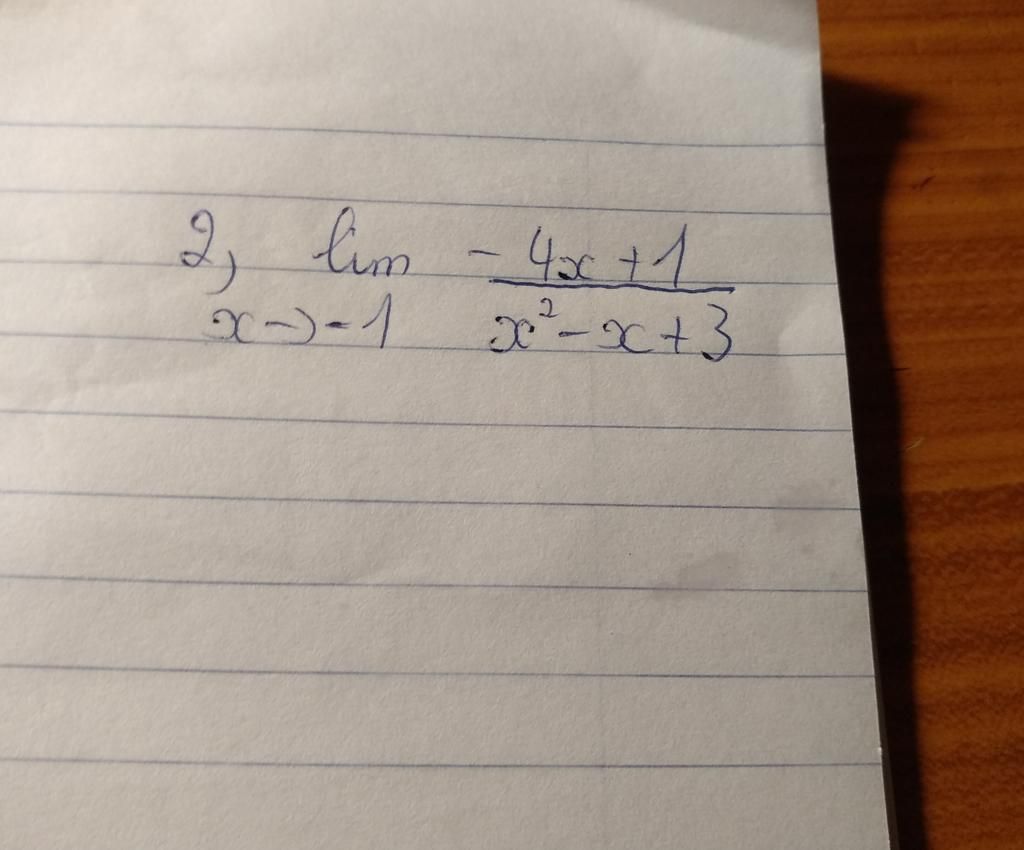 2, lim -4x+1
x->-1 x²-x+3